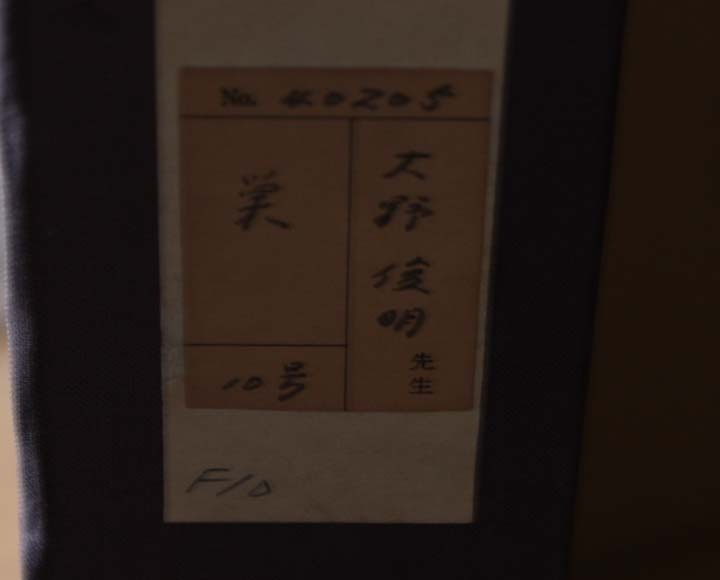 No. 40205
大野俊明先生
巣
10号
F10